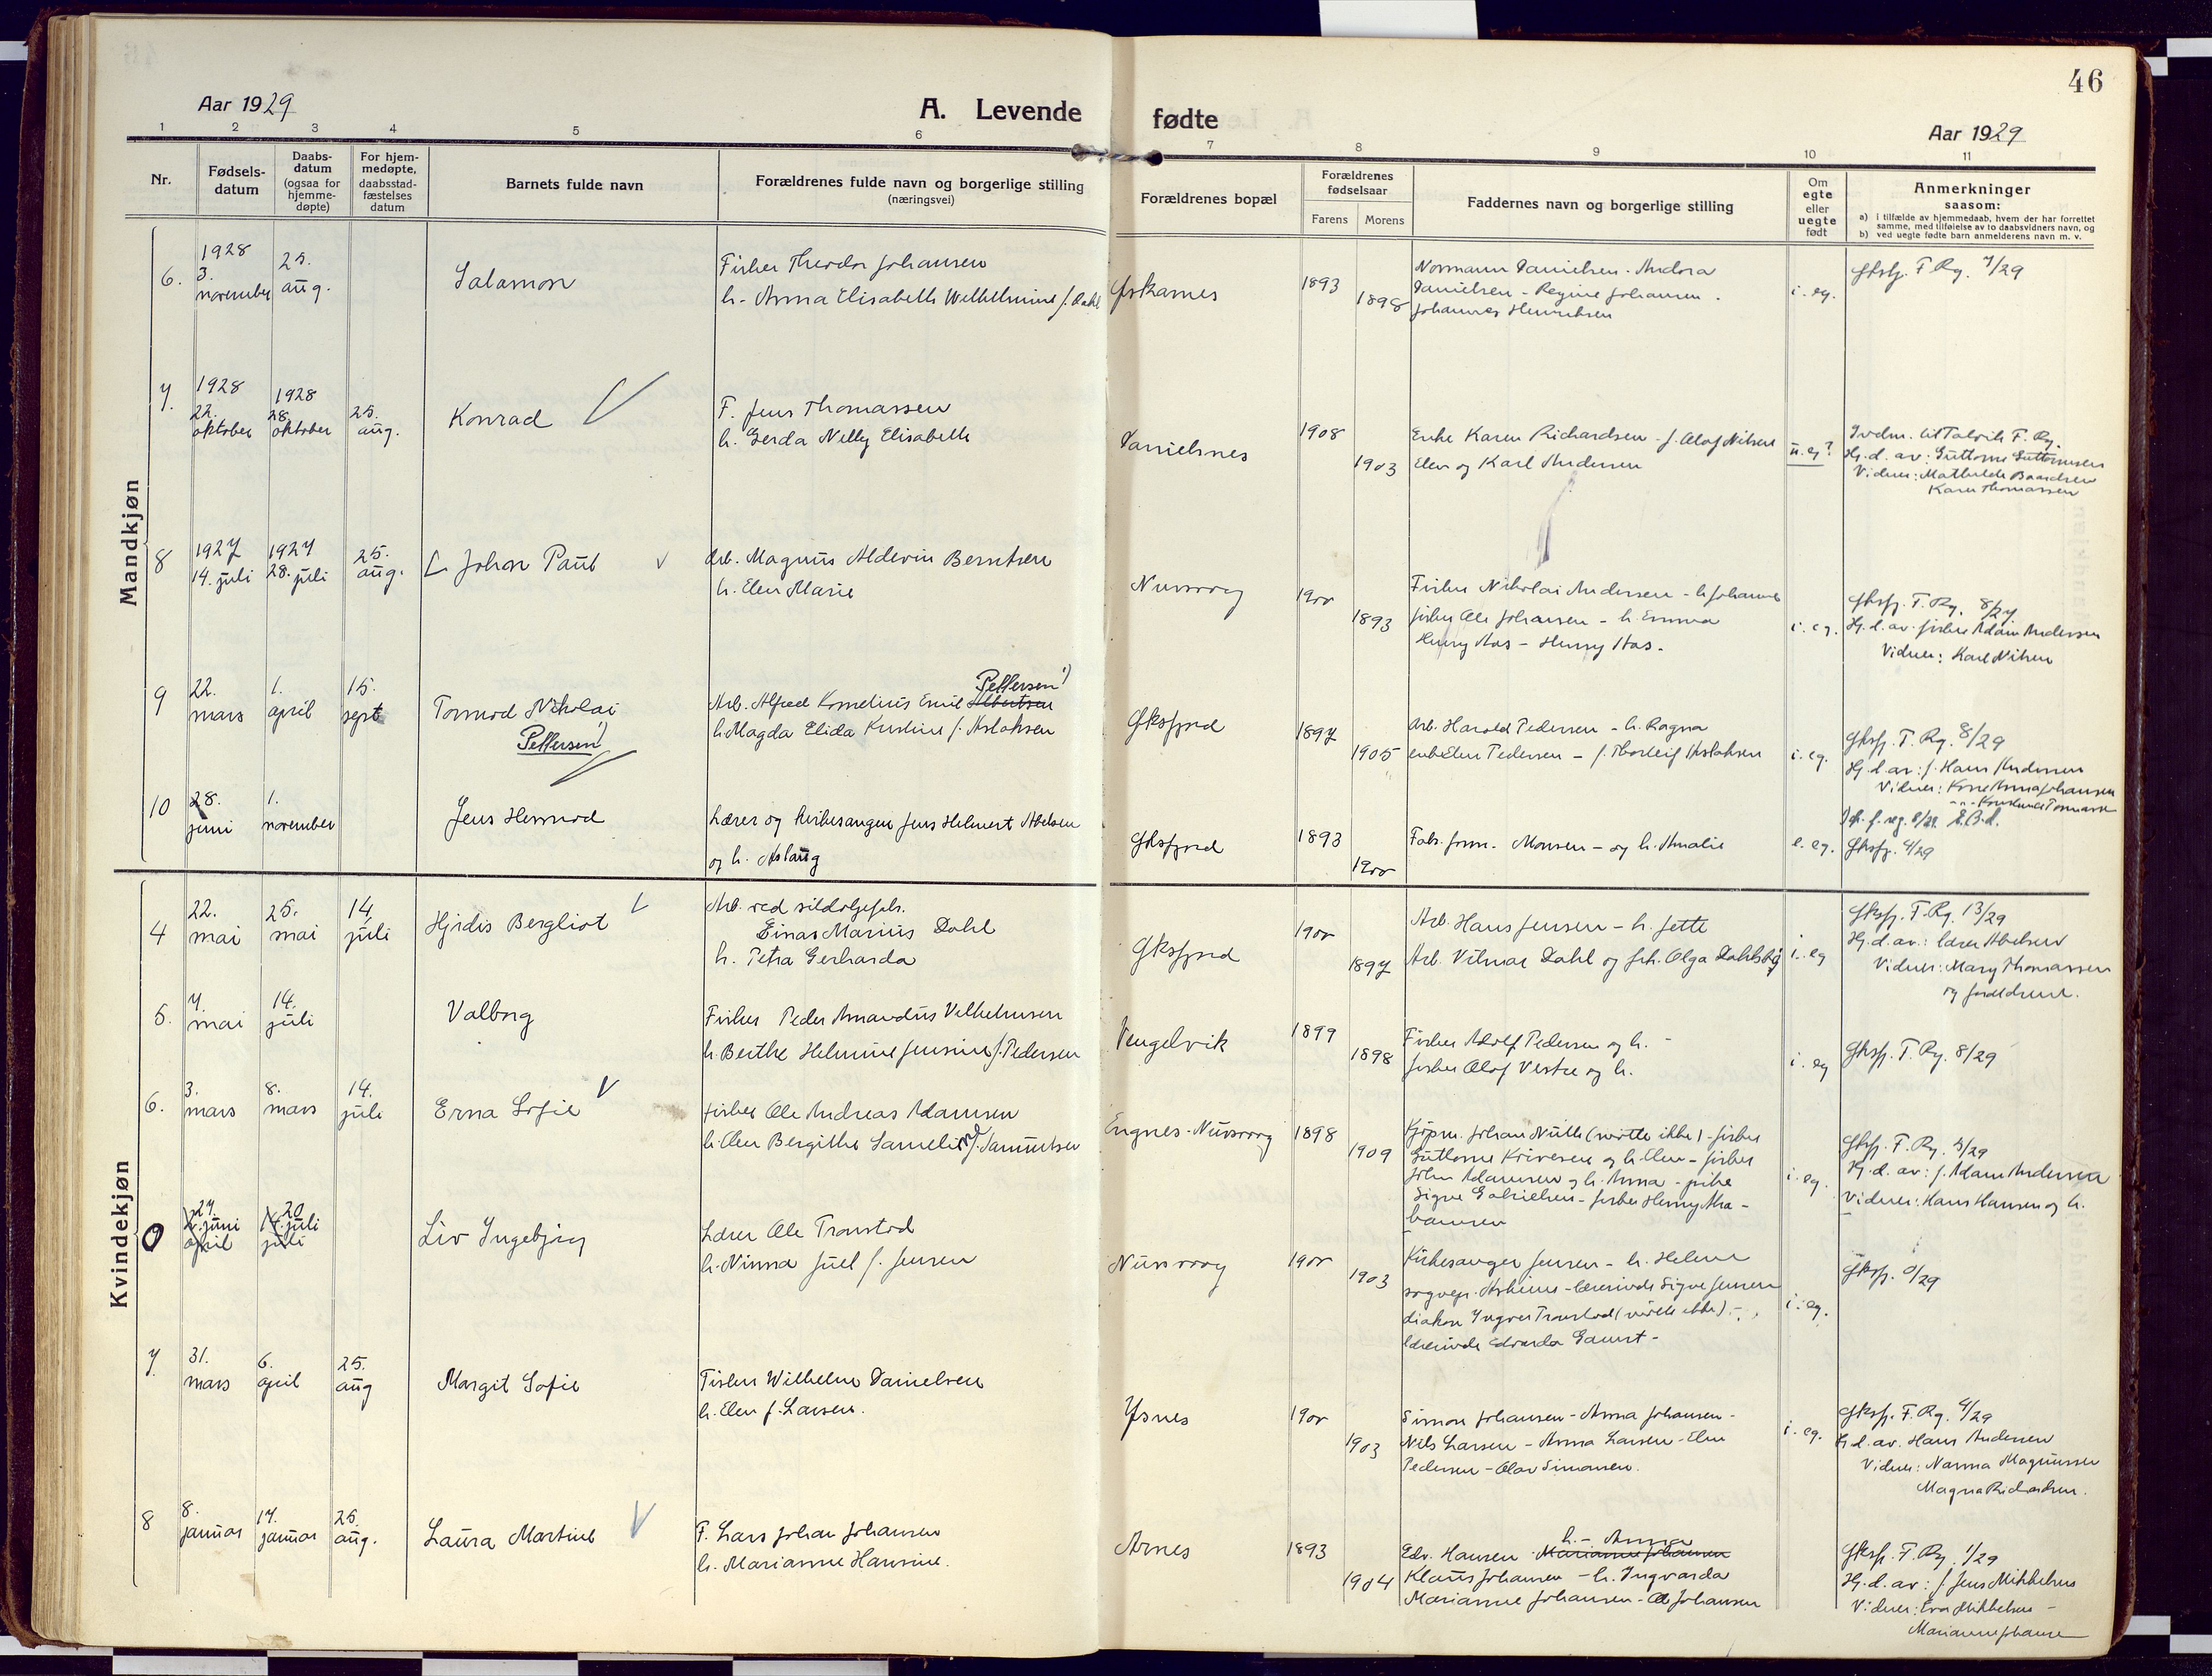 46
Aar 1929
A. Levende fødte
Aar 1929
1 2 3 4 5 6 7 8 9 10 11
Nr.
Fødsels-
datum
Daabs-
datum
(ogsaa for
hjemme-
døpte)
For hjem-
medøpte,
daabsstad-
fæstelses
datum
Barnets fulde navn
Forældrenes fulde navn og borgerlige stilling
(næringsvei)
Forældrenes bopæl
Forældrenes
fødselsaar
Farens Morens
Faddernes navn og borgerlige stilling
Om
egte
eller
uegte
født
Anmerkninger
saasom:
a) i tilfælde av hjemmedaab, hvem der har forrettet
samme, med tilføielse av to daabsvidners navn, og
b) ved uegte fødte barn anmelderens navn m. v.
Mandkjøn
6.
1928
3.
november
25.
aug.
Salamon
Fisker Theodor Johansen
h. Anna Elisabeth Wilhelmine f. Dahl
1893
1898
Normann Danielsen - Andora
Danielsen - Regine Johansen.
Johannes Henriksen
i. eg.
7.
1928
22.
oktober
1928
28.
oktober
25.
aug.
Konrad
F. Jens Thomassen
h. Gerda Nelly Elisabeth
Danielsnes
1908
1903
Enke Karen Richardsen - f. Olaf Nilsen
Elen og Karl Andersen
u. eg?
Hj. d. av: Guttorm Guttormsen
Vidner: Mathilde Baardsen
Karen Thomassen
8
1927
14. juli
1927
28. juli
25.
aug.
Johan Paul
Arb. Magnus Aldevin Berntsen
h. Elen Marie
Nuvsvog
1900
1893
Fisker Nikolai Andersen - h. Johanne
fisker Ole Johansen - h. Emma
i. eg.
Øksfj. T. Rg. 8/27
Hj. d. av. fisker Adam Andersen
Vidner: Karl Nilsen
9
22.
mars
1.
april
15.
sept
Tormod Nikolai
Pettersen 1)
Pettersen 1)
Arb. Alfred Kornelius Emil Albertsen
h. Magda Elida Kristine f. Aslaksen
Øksfjord
1897
1905
Arb. Harald Pedersen - h. Ragna
enke Elen Pedersen - f. Thorleif Aslaksen
i. eg.
Øksfj. T. Rg. 8/29
Hj. d. av: f. Hans Andersen
10
28.
juni
1.
november
Jens Hermod
Lærer og kirkesanger Jens Helmert Abelsen
og h. Aslaug
Øksfjord
1893
1900
Fabr. form. Monsen - og h. Amalie
e. eg.
Kvindekjøn
4
22.
mai
25.
mai
14
juli
Hjrdis Bergliot
Arb. ved sildoljefabr.
Einar Marius Dahl
h. Petra Gerharda
Øksfjord
1900
1897
Arb. Hans Jensen - h. Jette
Arb. Vilmar Dahl og frk. Olga Dahlsbø
i. eg
Øksfj. T. Rg. 13/29
Hj. d. av.: lærer Abelsen
Vidner: Mary Thomassen
og foreldrene.
5.
7.
mai
14.
juli
Valborg
Fisker Peder Amandus Vilhelmsen
h. Berthe Helmine Jensine f. Pedersen
Vengelvik
1899
1898
Fisker Adolf Pedersen og h. -
fisker Olaf Vestre og h.
i. eg
Øksfj. T. Rg. 8/29
6.
3.
mars
8.
mars
14.
juli
Erna Sofie
fisker Ole Andreas Adamsen
h. Elen Bergithe Sameline f. Samuelsen
Engnes - Nuvsvog
1898
1909
Kjøpm. Johan Nutti (møtte ikke) - fisker
Guttorm Kivesen og h. Elen - fisker
John Adamsen og h. Anna - pike
Signe Gabrielsen - fisker Henry Abra-
hamsen
i. eg.
Øksfj. T. Rg. 5/29
Hj. d. av: f. Adam Andersen
Vidner: Hans Hansen og h.
0
27.
juni
april
20
14. juli
juli
Liv Ingebjørg
Lærer Ole Tronstad
h. Ninna Juel f. Jensen
Nuvsvog
1900
1903
Kirkesanger Jensen - h. Helene
sognepr. Askeim - lærerinde Signe Jensen
diakon Yngvar Tronstad (møtte ikke) -
lærerinde Edvarda Gamst -
i. eg.
Øksfj. 0/29
7
31.
mars
6.
april
25.
aug
Margit Sofie
Fisker Wilhelm Danielsen
h. Elen f. Larsen.
Ysnes
1900
1903
Simon Johansen - Anna Johansen -
Nils Larsen - Anna Larsen - Elen
Pedersen - Olav Simonsen.
i. eg.
Øksfj. T. Rg. 4/29
Hj. d. av. Hans Andersen
Vidner: Nanna Magnussen
Magna Richardsen.
8
8.
januar
14.
januar
25.
aug.
Laura Martine
F. Lars Johan Johansen
h. Marianne Hansine.
Arnes
1893
1904
h. - Anna
Edv. Hansen - Marianne Johansen
Klaus Johansen - h. Ingvarda
Marianne Johansen - Ole Johansen
Øksfj. T. Rg. 1/29
Hj. d. av: f. Jens Mikkelsen
Vidner: Eva Mikkelsen -
Marianne Johansen